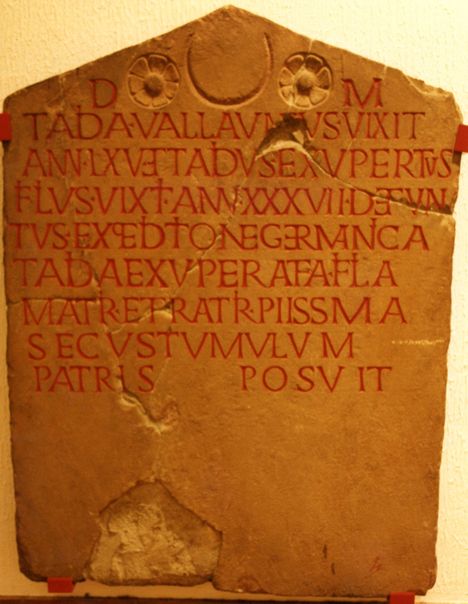 D M
TADIA·VALLAVNIVS·VIXIT
ANN·LXV·ET TADIVS·EXVPERTVS
FILIVS·VIXIT·ANN·XXXVII·DEFVN
TVS·EXPEDITIONE·GERMANICA
TADIA EXVPERATA·FILIA
MATRI·ET FRATRI·PIISSIMA
SECVS TVMVLVM
PATRIS POSVIT